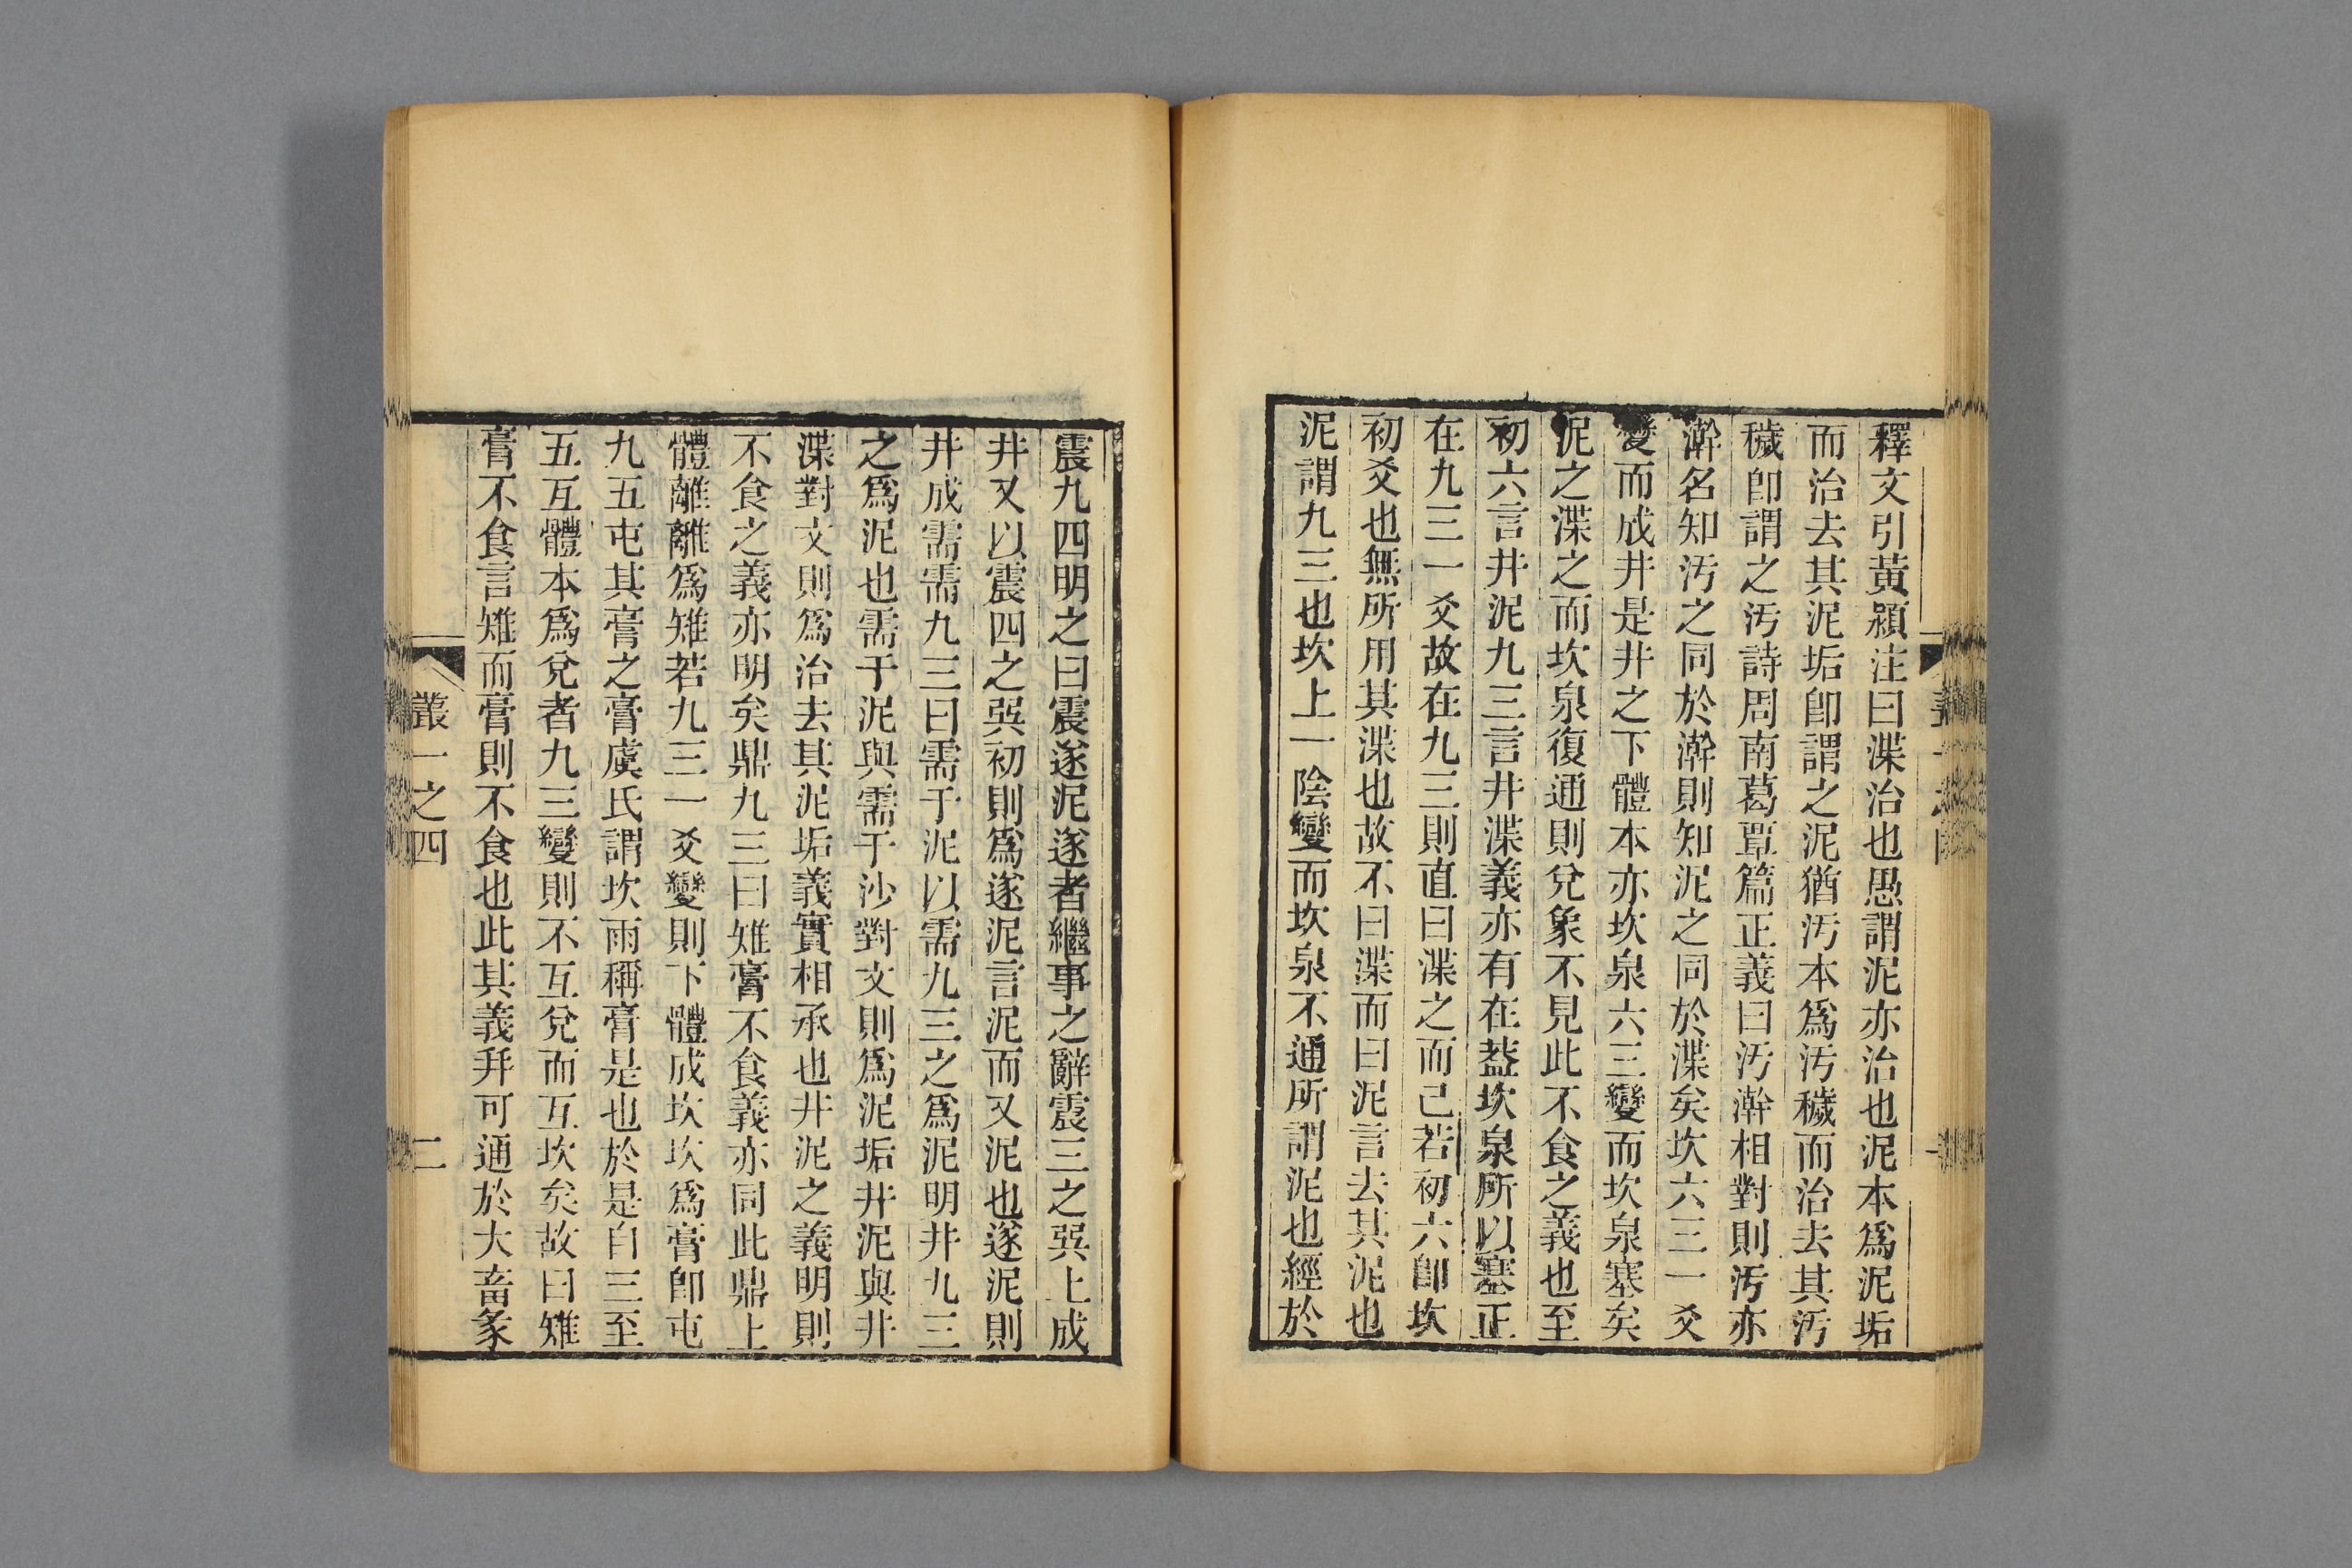 釋文引黃潁注曰渫治也愚謂泥亦治也泥本爲泥垢
而治去其泥垢卽謂之泥猶汚本爲汚穢而治去其汚
穢卽謂之汚詩周南葛覃篇正義曰汚澣相對則汚亦
澣名知汚之同於澣則知泥之同於渫矣坎六三一爻
變而成井是井之下體本亦坎泉六三變而坎泉塞矣
泥之渫之而坎泉復通則兌象不見此不食之義也至
初六言井泥九三言井渫義亦有在葢坎泉所以塞正
在九三一爻故在九三則直曰渫之而己若初六卽坎
初爻也無所用其渫也故不曰渫而曰泥言去其泥也
泥謂九三也坎上一陰變而坎泉不通所謂泥也經於
震九四明之曰震遂泥遂者繼事之辭震三之巽上成
井又以震四之巽初則爲遂泥言泥而又泥也遂泥則
井成需需九三曰需于泥以需九三之爲泥明井九三
之爲泥也需于泥與需于沙對文則爲泥垢井泥與井
渫對文則爲治去其泥垢義實相承也井泥之義明則
不食之義亦明矣鼎九三曰雉膏不食義亦同此鼎上
體離離爲雉若九三一爻變則下體成坎坎爲膏卽屯
九五屯其膏之膏虞氏謂坎雨稱膏是也於是自三至
五互體本爲兌者九三變則不互兌而互坎矣故曰雉
膏不食言雉而膏則不食也此其義幷可通於大畜彖
叢一之四
二